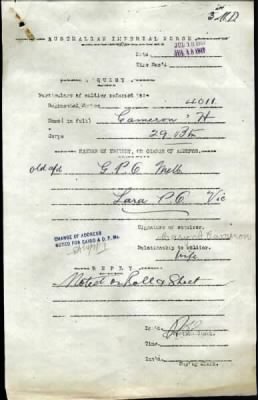 3 M.D.
AUSTRALIAN IMPERIAL FORCE.
JUL 18 1917
Date
JUL 18 1917
Time Rec'd
QUERY
Particulars of soldier referred to:-
Regimental Number 4011
Name (in full) Cameron H
Corps 29 Bn
NATURE OF ENQUIRY, OR CHANGE OF ADDRESS.
old add G.P.O Melb
Lara P.O Vic
Signature of enquirer.
Cameron
CHANGE OF ADDRESS
NOTED FOR CARDS & D. F. No.
Relationship to soldier.
Wife
REPLY
Noted on Roll & Sheet
Time